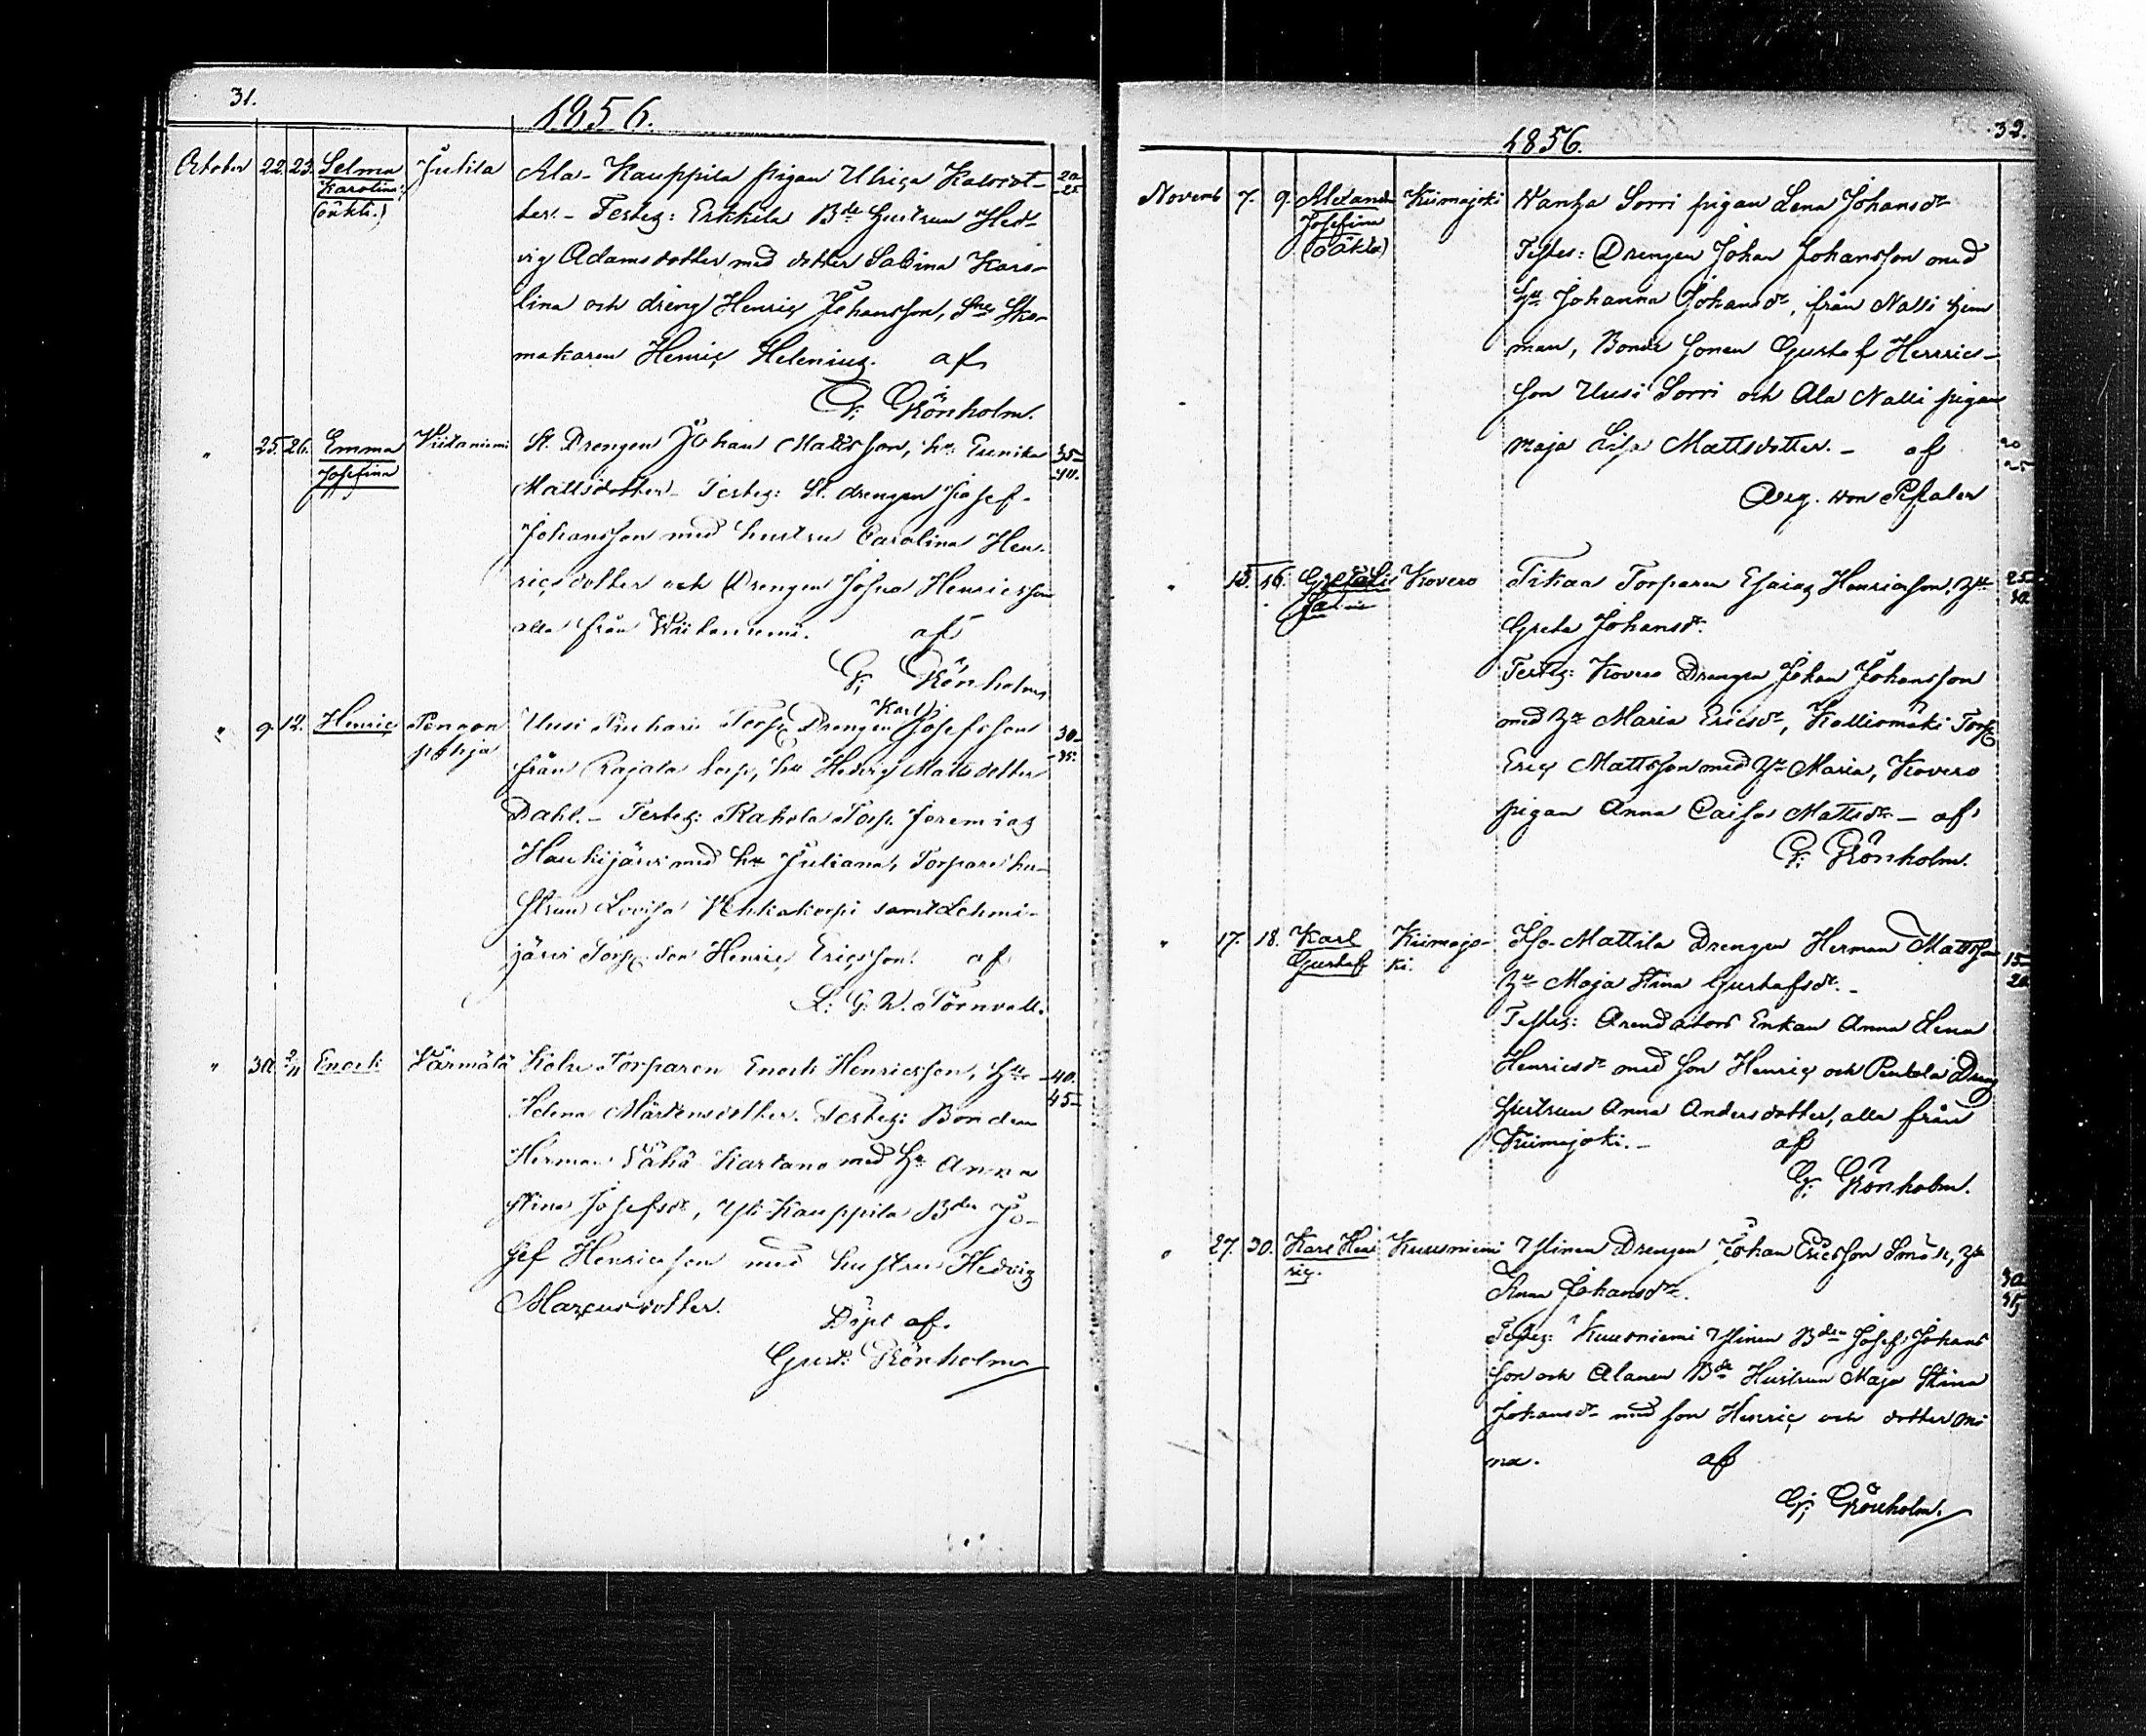 31.
1856.
October 22. 23. Selma Jutila Ala-Kauppila pigan Ulrica Karlsdot-
Karolina
(oäkta.)
20
25
ter. - Testes: Erkkilä Bde hustrun Hed-
vig Adamsdotter med dotter Sabina Karo-
lina och dreng Henric Johansson, Sne Sko-
makaren Henric Helenius. af
G. Grönholm.
" 25. 26. Emma Viitaniemi St. Drengen Johan Mattsson, hu Eunika
Josefina
35
40.
Mattsdotter - Testes: St. drengen Josef
Johansson med hustru Carolina Hen-
ricsdotter och Drengen Josua Henricsson
alla från Wiitaniemi. af
G. Grönholm
" 9. 12. Henric Pengon Uusi Torp. Drengen Karl Josefsson
pohja
30
35.
från Rajala torp, hu Hedvig Mattsdotter
Dahl. - Testes: Rahola Torp. Jeremias
Haukijärvi med hu Juliana, Torpare hu-
strun Lovisa Vehkakorpi samt Lehmi-
järvi Torp. son Henric Ericsson. af
L. G. W. Törnvall.
" 30. 2/11 Enock Värmälä Torparen Enock Henricsson, Hu
40.
45
Helena Mårtensdotter. Testes: Bonden
Herman Vähä Kartano med Hu Anna
Stina Josefsdr, Yli-Kauppila Bden Jo-
sef Henricsson med hustru Hedvig
Marcusdotter. Döpt af.
Gust: Grönholm
32.
1856.
Novemb 7. 9. Alexandra Kiimajoki Wanha Sorri pigan Lena Johansdr
Josefina
(oäkta)
Testes: Drengen Johan Johansson med
Hu Johanna Johansdr, från Nalli hem
man, Bonde sonen Gustaf Henrics-
son Uusi Sorri och Ala Nalli pigan
Maja Lisa Mattsdotter. - af
20
25
Aug. von Pfaler
" 15. 16. Kovero Tikan Torparen Esaias Henricsson, Hu
25
30
Greta Johansdr.
Testes: Kovero Drengen Johan Johansson
med Hu Maria Ericsdr, Kalliomäki Torp
Eric Mattsson med Hu Maria, Kovero
pigan Anna Caisa Mattsdr - af
G. Grönholm.
" 17. 18. Karl Kiimajo- Iso-Mattila Drengen Herman Mattsson
Gustaf ki.
15
20
Hu Maja Stina Gustafsdr. -
Testes: Arendators Enkan Anna Lena
Henricsdr med son Henric och Penkola Dreng
hustrun Anna Andersdotter, alla från
Kiimajoki. - af
G. Grönholm.
" 27. 30. Karl Hen Kuusniemi Ylinen Drengen Johan Ericsson, Hu
ric.
30
35
Anna Johansdr.
Testes: Kuusniemi Ylinen Bden Josef Johans
son och Alanen Bde Hustrun Maja Stina
Johansdr med son Henric och dotter Mi
na. af
G. Grönholm.